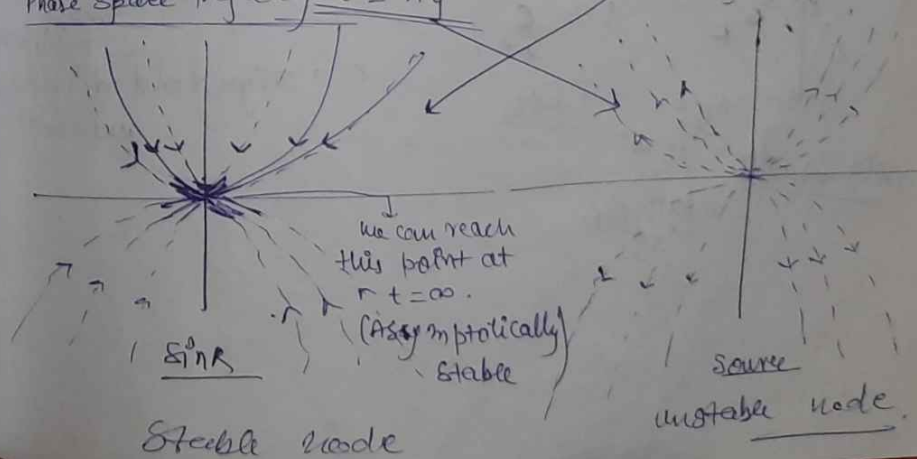 Phase space
we can reach
this point at
t = ∞.
(Assymptotically
stable
Sink
Stable node
Source
unstable node.